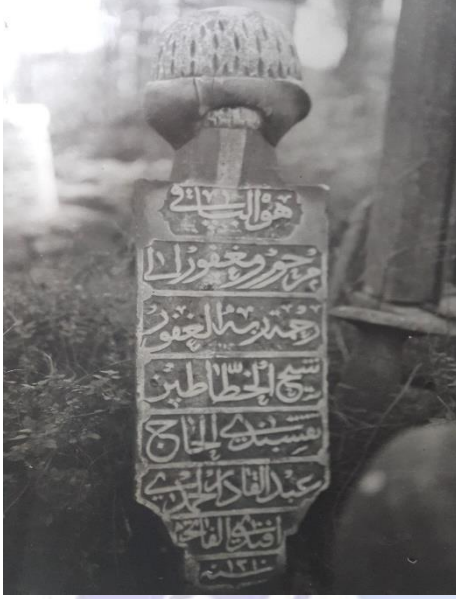 هو الباقي
مرحوم و مغفور الى
رحمة ربه الغفور
شيخ الخطاطين
نقشبندي الحاج
عبد القادر حمدي
افندي الفاتحة
سنه